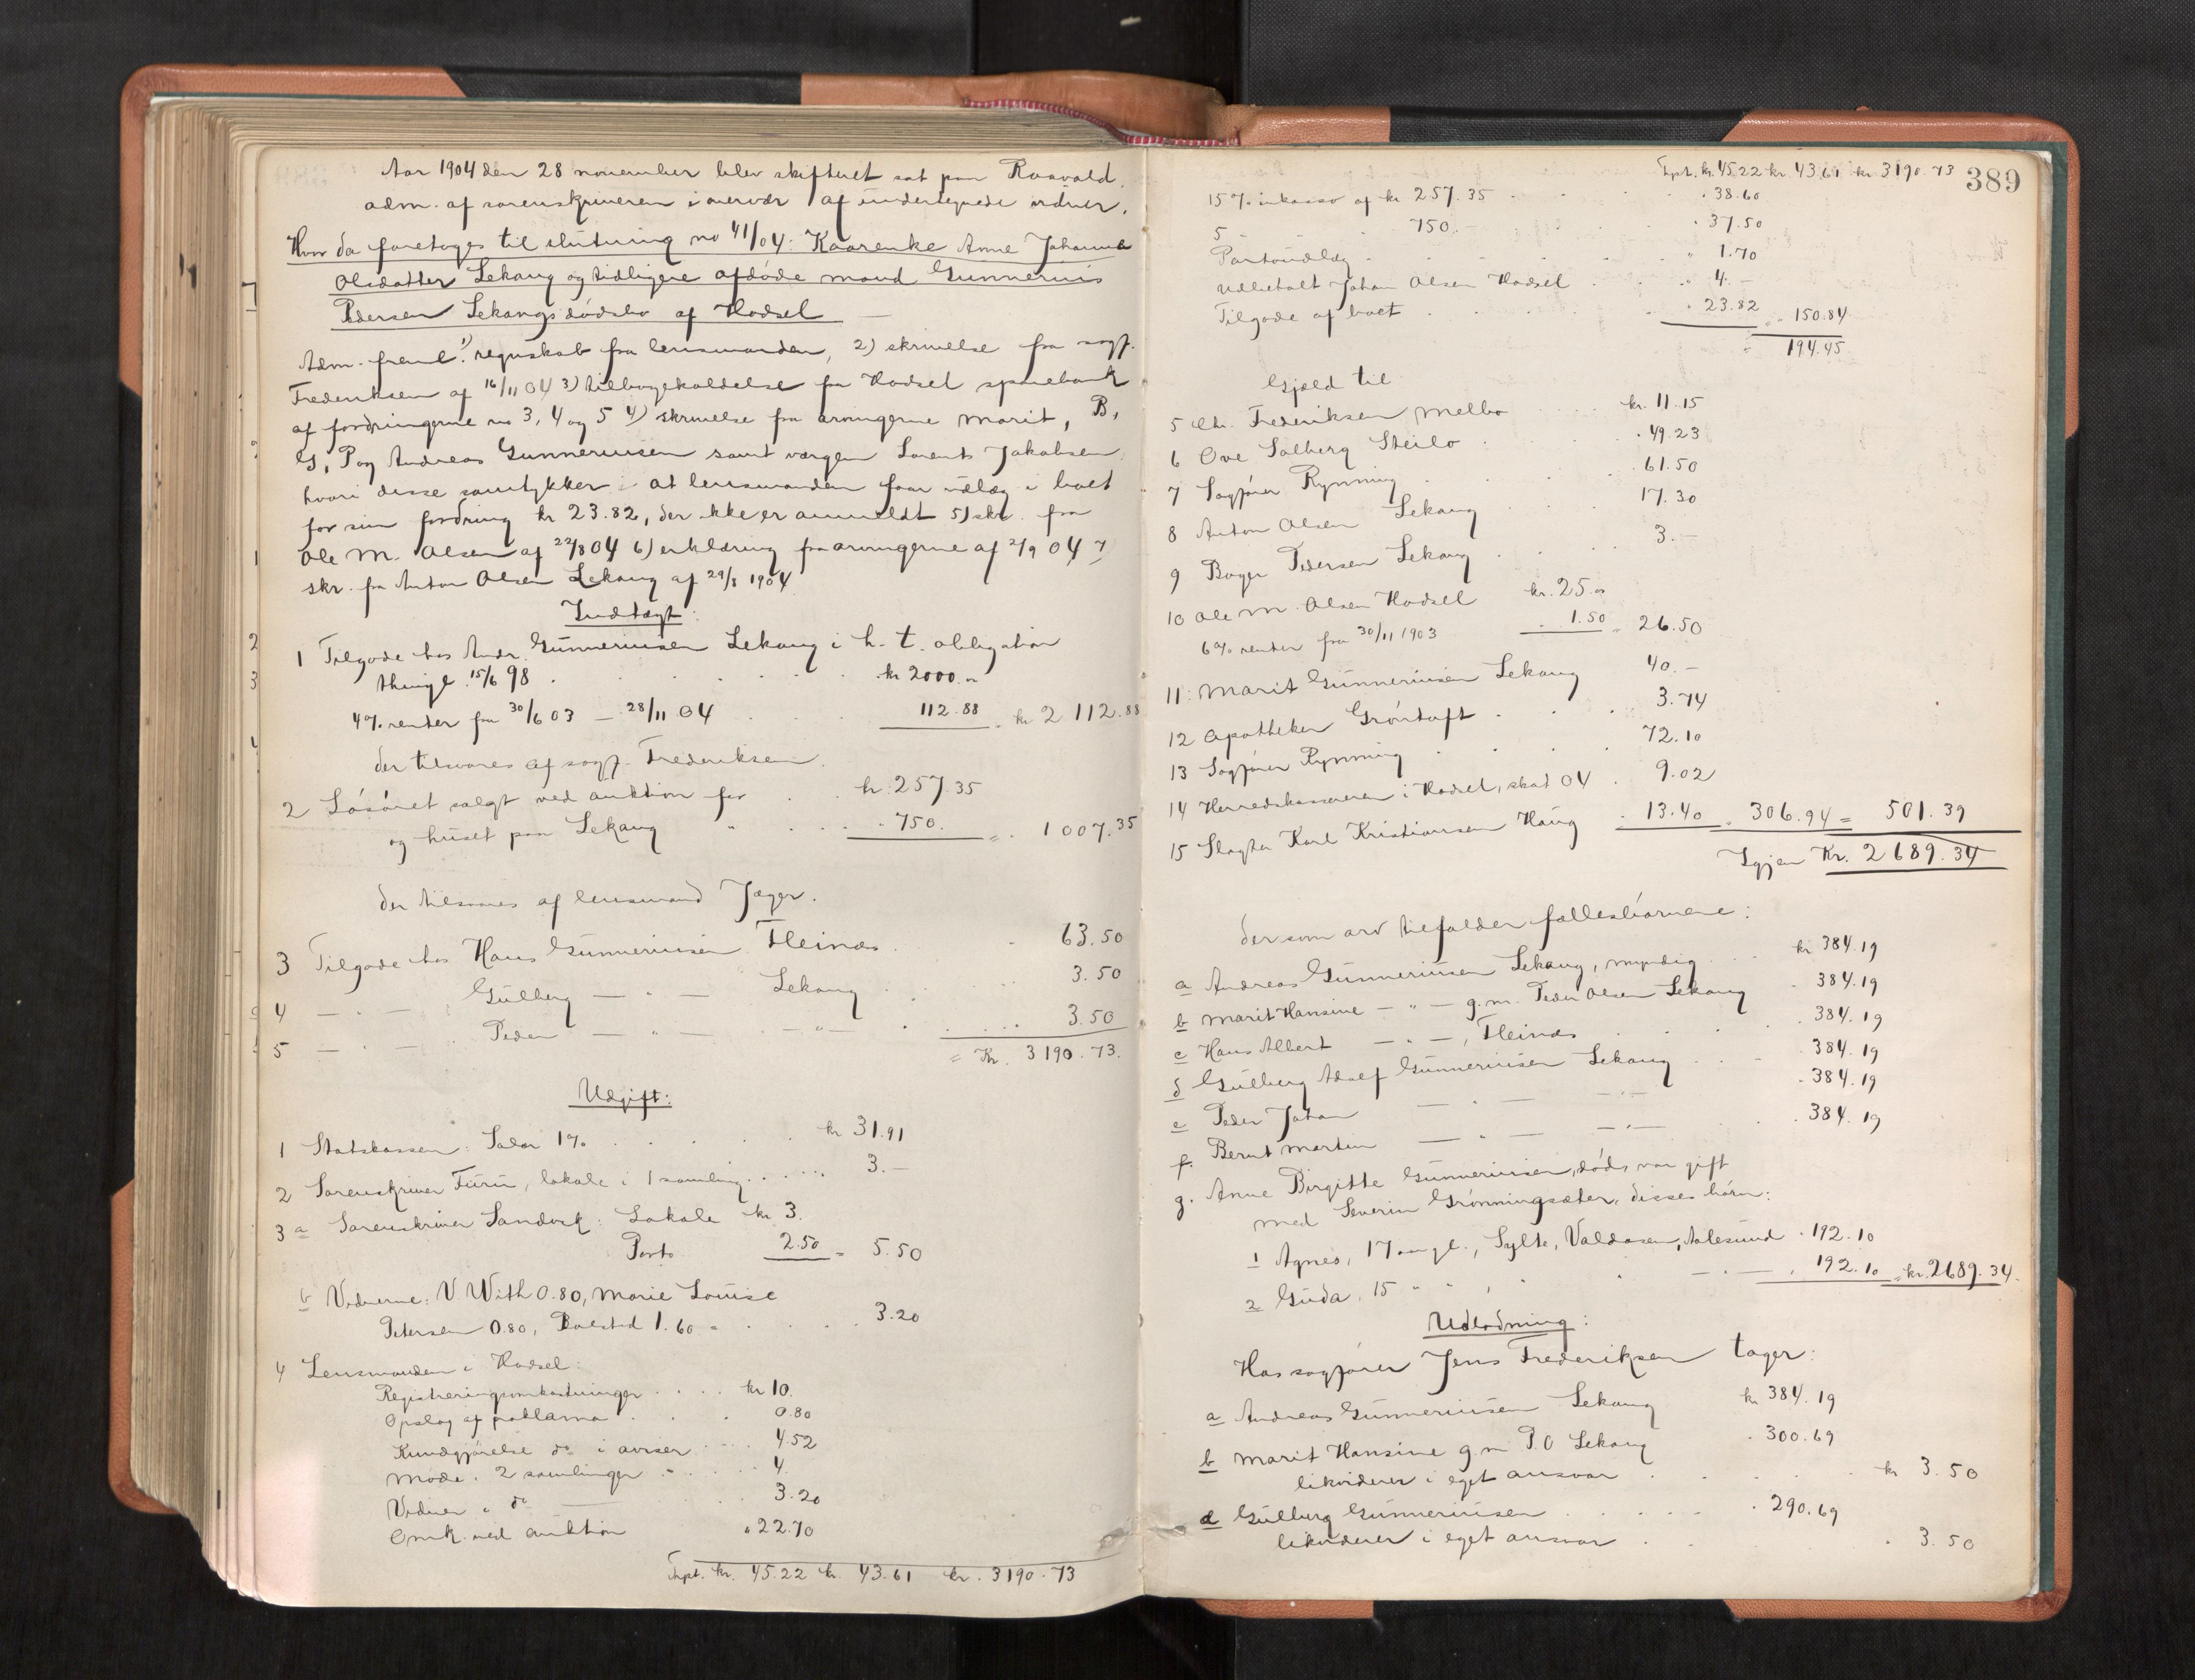 Aar 1904 den 28 november blev skifteret sat paa Raavold,
adm. af sorenskriveren i overvær af undertegnede vidner.
Hvor da foretoges til slutning no 41/04: Kaarenke Anne Johanna
Olsdatter Lekang og tidligere afdøde mand Gunnerius
Pedersen Lekangs dødsbo af Hadsel
Adm. freml. 1) regnskab fra lensmanden, 2) skrivelse fra sagf.
Frederiksen af 16/11 04 3) tilbagekaldelse fra Hadsel sparebank
af fordringerne no 3, 4 og 5 4) skrivelse fra arvingerne Marit, B,
G, P og Andreas Gunneriusen samt værgen Lorents Jakobsen,
hvori disse samtykker i at lensmanden faar udlæg i boet
for sin fordring kr 23.82, der ikke er anmeldt 5) skr. fra
Ole M. Olsen af 22/8 04 6) erklæring fra arvingerne af 2/9 04 7)
skr. fra Anton Olsen Lekang af 29/8 1904
Indtægt:
1 Tilgode hos Andr. Gunneriusen Lekang i h. t. obligation
thingl. 15/6 98 . . . kr 2000.00
4% renter fra 30/6 03 – 28/11 04 . . 112.88 = kr 2 112.88
der tilsvares af sagf. Frederiksen.
2 Løsøret solgt ved auktion for . . kr. 257.35
og huset paa Lekang " . . . 750. = . 1 007.35
der tilsvares af lensmand Jæger.
3 Tilgode hos Hans Gunneriusen Fleinæs . . 63.50
4 — " — Gulberg — " — Lekang . . 3.50
5 — " — Peder — " — — " — . . 3.50
= Kr. 3190.73.
Udgift:
1 Statskassen: Salar 1% . . . . kr 31.91
2 Sorenskriver Furu, lokale i 1 samling . . . 3.—
3 a Sorenskriver Sandvik: Lokale kr 3.
Porto 2.50 = 5.50
b Vidnerne: V With 0.80, Marie Louise
Petersen 0.80, Bolstad 1.60 = . . . 3.20
4 Lensmanden i Hadsel:
Registreringsomkostninger . . . . kr 10.
Opslag af proklama . . . 0.80
Kundgjørelse do i aviser . . . 4.52
Møde i 2 samlinger . . . 4.
Vidner i do — . . 3.20
Omk. ved auktion " 22.70
Trpt. kr. 45.22 kr. 43.61 kr. 3190.73
389
Trpt. kr. 45.22 kr. 43.61 kr 3190.73
15% inkasso af kr 257.35 . . . 38.60
5 - - - 750.- . . 37.50
Portoudlæg . . . " 1.70
Udbetalt Johan Olsen Hadsel . . " 4.—
Tilgode af boet . . . . 23.82 = 150.84
" 194.45
Gjæld til
5 Chr. Frederiksen Melbo . . . kr. 11.15
6 Ove Solberg Steilo . . 49.23
7 Sagfører Rynning . . 61.50
8 Anton Olsen Lekang . . . 17.30
9 Boger Pedersen Lekang . . . 3.—
10 Ole M. Olsen Hadsel kr. 25.00
6% renter fra 30/11 1903 . 1.50 = 26.50
11: Marit Gunneriusen Lekang 40.—
12 Apotheker Grøntoft . . . 3.74
13 Sagfører Rynning . . . 72.10
14 Herredskassereren i Hadsel, skat 04 . 9.02
15 Slagter Karl Kristiansen Haug . 13.40 = 306.94 = 501.39
Igjen Kr. 2689.34
der som arv tilfalder fællesbørnene:
a Andreas Gunneriusen Lekang, myndig . . . kr 384.19
b Marit Hansine — " — g.m. Peder Olsen Lekang . 384.19
c Hans Albert — " —, Fleinæs . . . 384.19
d Gulberg Adolf Gunneriusen Lekang . . . 384.19
e Peder Johan — " — — " — . 384.19
f. Bernt Martin — " — — " — . . 384.19
g. Anne Birgitte Gunneriusen, død, var gift
med Severin Grønningsæter, disses børn:
1 Agnes, 17 aar gl., Sylte, Valdosen, Aalesund . 192.10
2 Guda, 15 " " , " — " — , 192.10 = kr. 2689.34.
Udlodning:
Hos sagfører Jens Frederiksen tager:
a Andreas Gunneriusen Lekang kr 384.19
b Marit Hansine g.m P.O Lekang . 300.69
likviderer i eget ansvar . . . . kr 3.50
d Gulberg Gunneriusen . . . . . 290.69
likviderer i eget ansvar . . . . 3.50